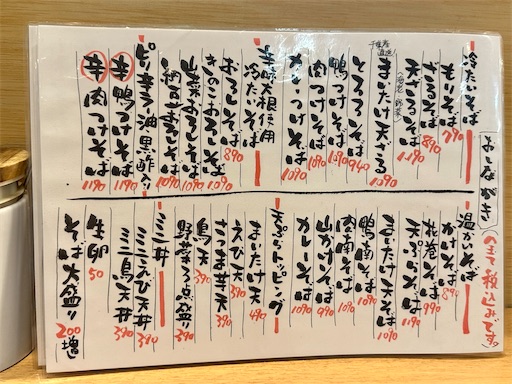 おしながき
(全て税込みです)
冷たいそば
もりそば 790
ざるそば 890
天ざるそば 1190
(海老・野菜)
千産直送!
まいたけ天ざる 1090
とろろそば 940
鴨つけそば 1090
肉つけそば 1090
カレーつけそば 1090
辛味大根使用
冷たいそば
おろしそば 890
きのこおろしそば 1090
山菜おろしそば 1090
納豆おろしそば 1090
ピリ辛ラー油 黒酢入り
辛 鴨つけそば 1190
辛 肉つけそば 1190
温かいそば
かけそば 890
花巻そば 990
天ぷらそば 1190
まいたけ天そば 1090
鴨南そば 1090
肉南そば 1090
山かけそば 990
カレーそば 1090
天ぷらトッピング
まいたけ天 490
えび天 390
さつま芋天 390
鳥天 390
野菜3点盛り 390
ミニ丼
ミニえび天丼 390
ミニ鳥天丼 390
生卵 50
そば大盛り 200増し